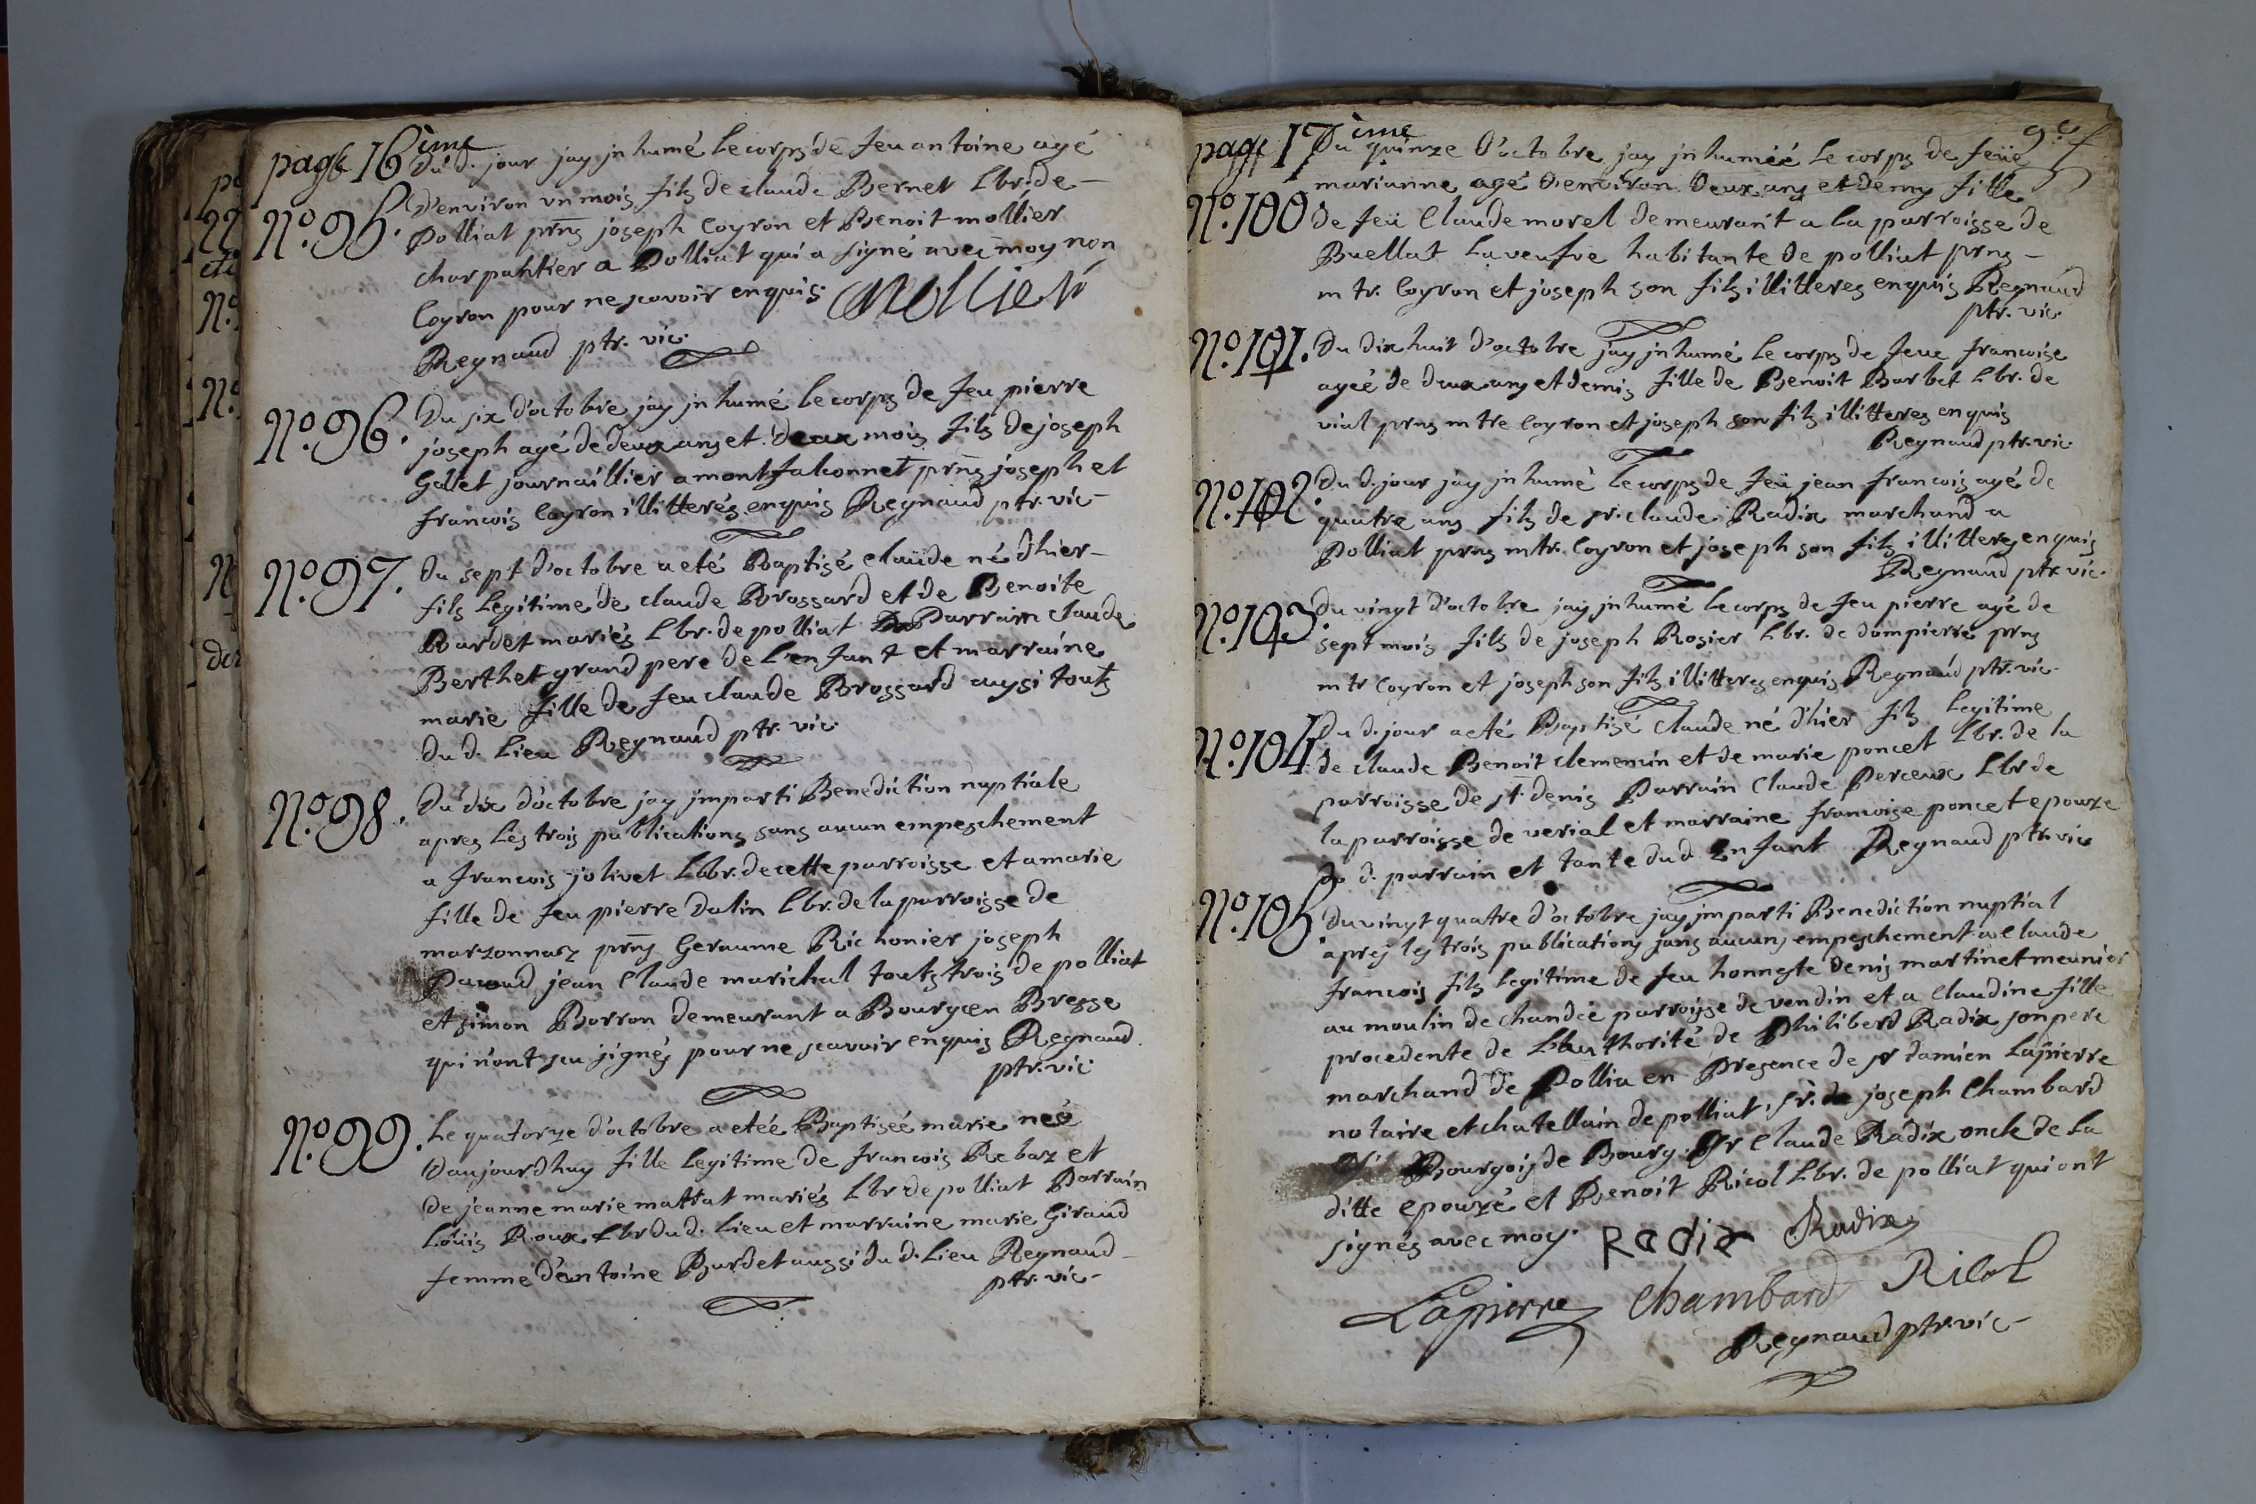 page 16ème
Du d. jour jay jnhumé le corps de feu antoine agé
N.o 95. d'environ vn mois fils de claude Bernet Lbr. de
Polliat prns joseph Coyron et Benoit mollier
charpantier a Polliat qui a signé avec moy non
Coyron pour ne scavoir enquis. Mollier
Regnaud ptr. vic.
N.o 96. Du six d'octobre jay jnhumé le corps de feu pierre
joseph agé de deux ans et deux mois fils de joseph
Gallet journaillier a montfalconnet prns joseph et
francois Coyron illitterés enquis Regnaud ptr. vic
N.o 97. du sept d'octobre a eté Baptisé claude né d'hier
fils legitime de claude Brossard et de Benoite
Bardet mariés Lbr. de polliat Parrain claude
Berthet grand pere de l'enfant et marraine
marie fille de feu claude Brossard aussi touts
du d. Lieu Regnaud ptr. vic.
N.o 98. Du dix d'octobre jay jmparti Benediction nuptiale
apres les trois publications sans aucun empeschement
a francois jolivet Lbr. de cette parroisse et a marie
fille de feu pierre Dalin Lbr. de la parroisse de
marzonnaz prns Geraume Richonier joseph
Pacoud jean Claude marichal touts trois de polliat
et simon Borron demeurant a Bourg en Bresse
qui n'ont scu signés pour ne scavoir enquis Regnaud
ptr. vic
N.o 99. Le quatorze d'octobre a etéé Baptiséé marie néé
d'aujourdhuy fille legitime de francois Rebaz et
de jeanne marie mattrat mariés Lbr de polliat Parrain
Loüis Roux Lbr du d. Lieu et marraine marie Giraud
femme d'antoine Bardet aussi du d. Lieu Regnaud
ptr. vic
page 17ème
Du quinze d'octobre jay jnhuméé le corps de feüe
marianne agé d'environ deux ans et demy fille
N.o 100. de feü Claude morel demeurant a la parroisse de
Buellat la veufve habitante de polliat prns
mtr. Coyron et joseph son fils illitteres enquis Regnaud
ptr. vic
N.o 101. Du dix huit d'octobre jay jnhumé le corps de feue francoise
ageé de deux ans et demis fille de Benoit Barbet Lbr. de
viat prns mtre Coyron et joseph son fils illitteres enquis
Regnaud ptr. vic
N.o 102. Du d. jour jay jnhumé le corps de feü jean francois agé de
quatre ans fils de sr. claude Radix marchand a
Polliat prns mtr. Coyron et joseph son fils illitteres enquis
Regnaud ptr vic.
N.o 103. Du vingt d'octobre jay jnhumé le corps de feu pierre agé de
sept mois fils de joseph Rosier Lbr. de dompierre prns
mtr Coyron et joseph son fils illitteres enquis Regnaud ptr. vic
N.o 104. Du d. jour a eté Baptisé Claude né d'hier fils legitime
de claude Benoit clemencin et de marie poncet Lbr. de la
parroisse de st. denis Parrain Claude Perceux Lbr de
la parroisse de verial et marraine francoise poncet epouze
du d. parrain et tante du d. Enfant Regnaud ptr. vic
N.o 105. Du vingt quatre d'octobre jay jmparti Benediction nuptial
apres les trois publications sans aucuns empeschement a claude
francois fils legitime de feu honneste denis martinet meunier
au moulin de chandée parroisse de vandin et a Claudine fille
procedente de L'authorité de Philiberd Radix son pere
marchand de Pollia en Presence de sr damien Lapierre
notaire et chatellain de polliat, sr. joseph Chambard
Bourgois de Bourg. Sr Claude Radix oncle de la
ditte epouzé et Benoit Ricol Lbr. de polliat qui ont
signés avec moy. Radix Radix
Lapierre Chambard Ricol
Regnaud ptr. vic